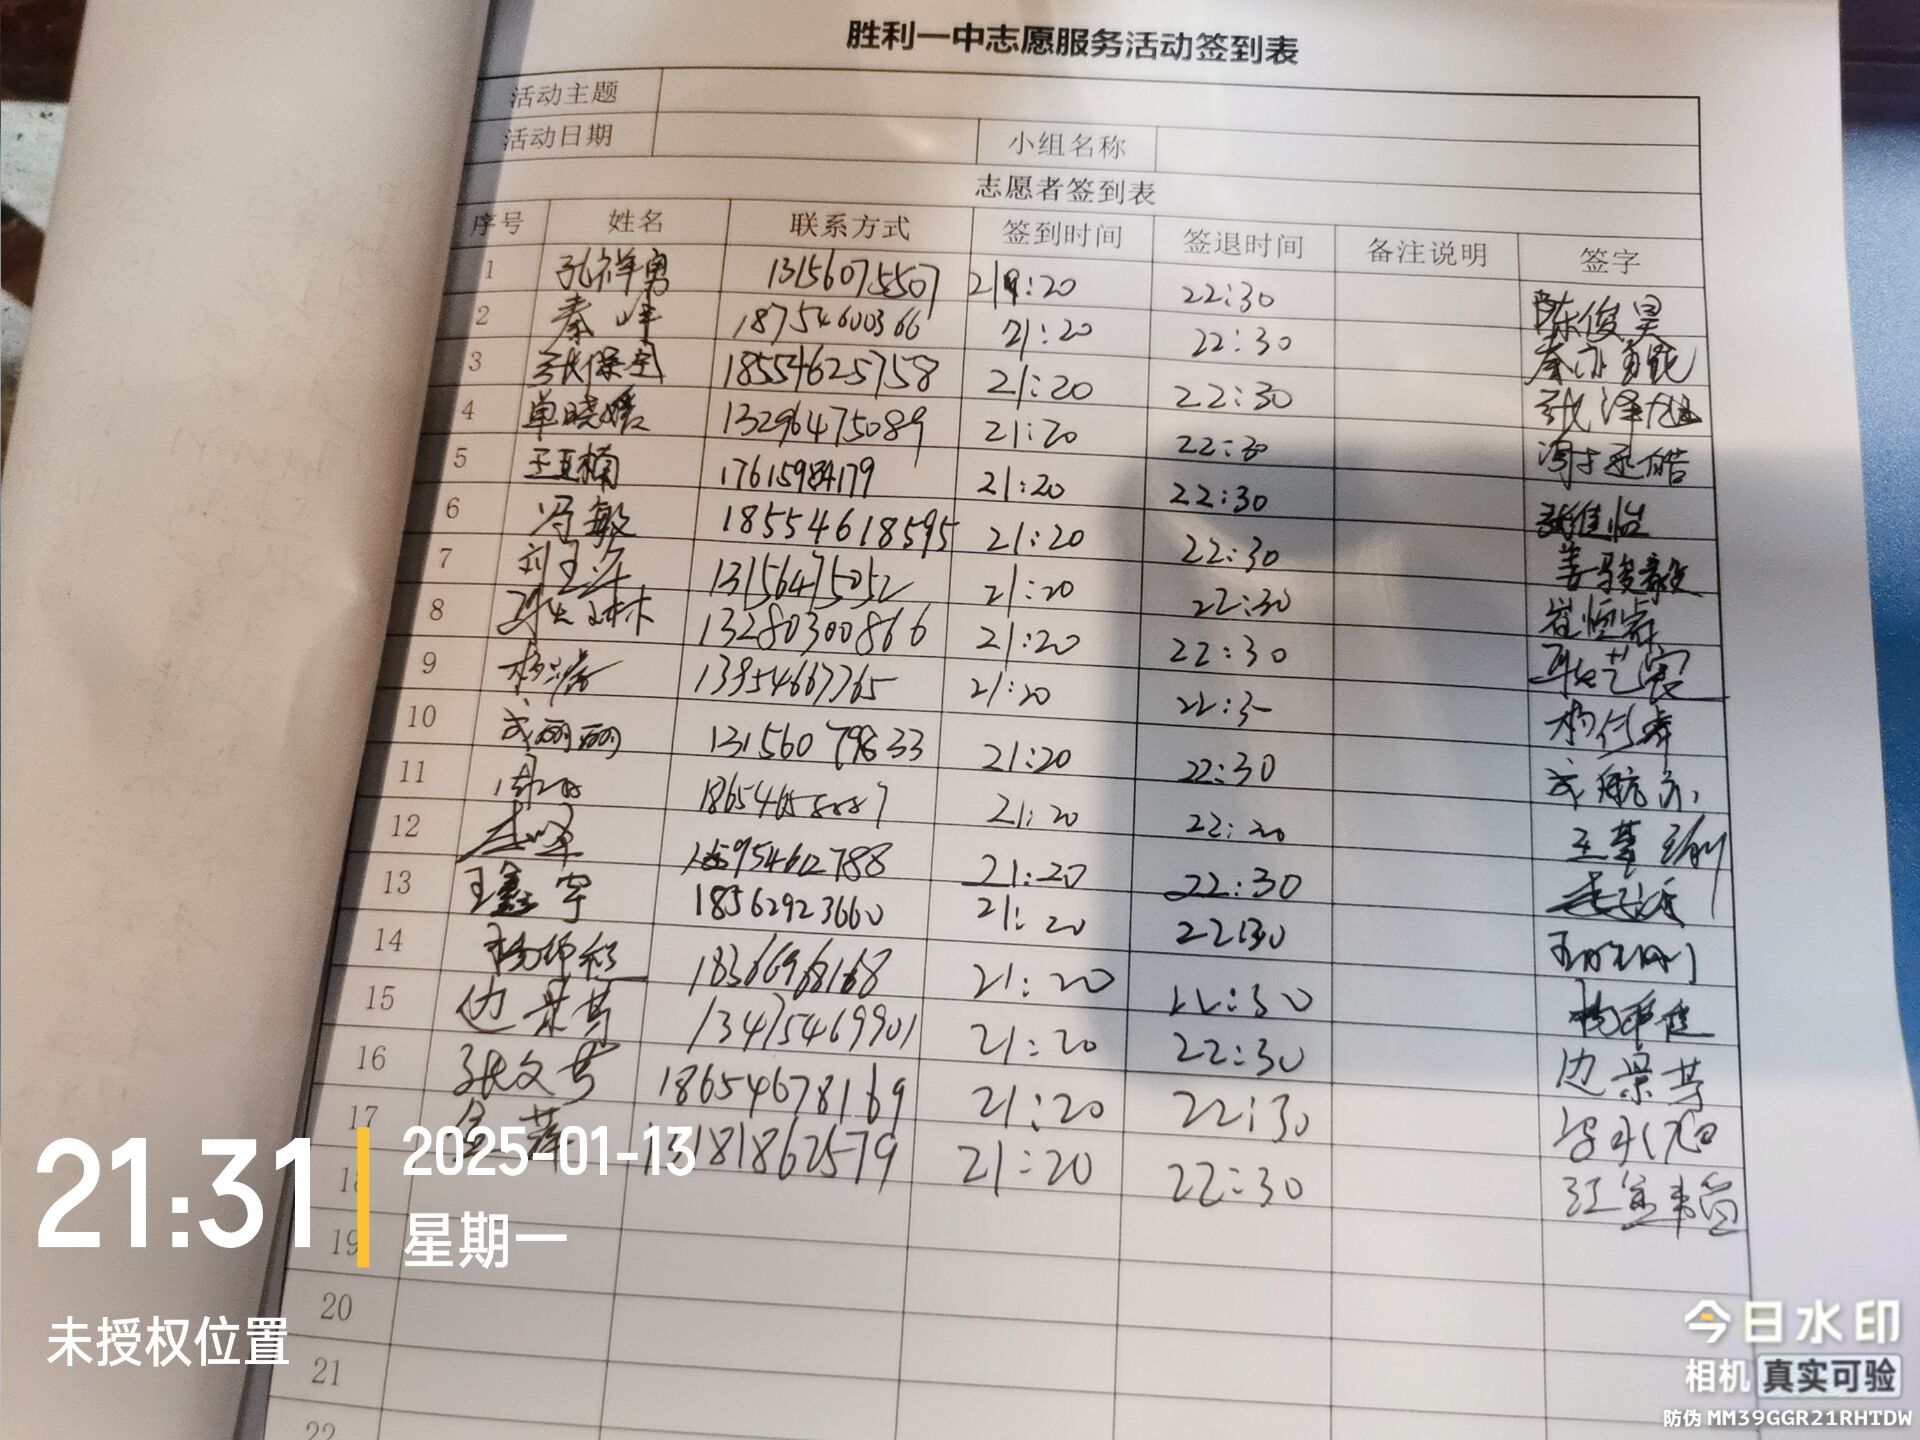 胜利一中志愿服务活动签到表
活动主题
活动日期 小组名称
志愿者签到表
序号 姓名 联系方式 签到时间 签退时间 备注说明 签字
1 孔祥勇 13156075507 21:20 22:30 陈俊昊
2 秦峰 18754600366 21:20 22:30
3 张保全 18554625758 21:20 22:30
4 单晓媛 13296475089 21:20 22:30
5 王亚楠 17615984179 21:20 22:30 张佳怡
6 冯敏 18554618595 21:20 22:30 姜骏毅
7 13156475052 21:20 22:30
8 13280300866 21:20 22:30
9 13954667765 21:20 22:3
10 成丽丽 13156079833 21:20 22:30
11 18654658887 21:20 22:20
12 21:20 22:30
13 王鑫宇 18562923660 21:20 22:30
14 18366968168 21:20 22:30
15 边景芳 13475469901 21:20 22:30 边景芳
16 张文芳 18654678169 21:20 22:30
17 13181862579 21:20 22:30
18
19
20
21
22
21:31
2025-01-13
星期一
未授权位置
今日水印
相机 真实可验
防伪 MM39GGR21RHTDW